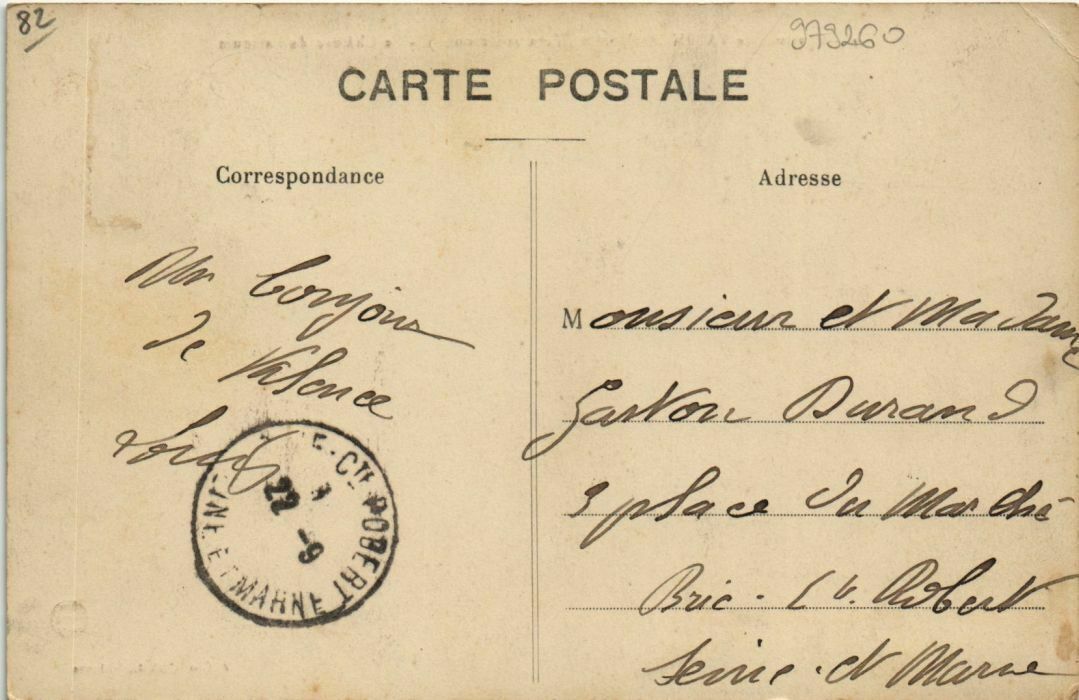 82
973260
CARTE POSTALE
Correspondance
Adresse
Un bonjour
de Valence
Louis
Monsieur et Madame
Gaston Durand
3 place du Marché
Brie. Cte. Robert
Seine. et Marne
E-CTE ROBERT
22 -9
SEINE ET MARNE